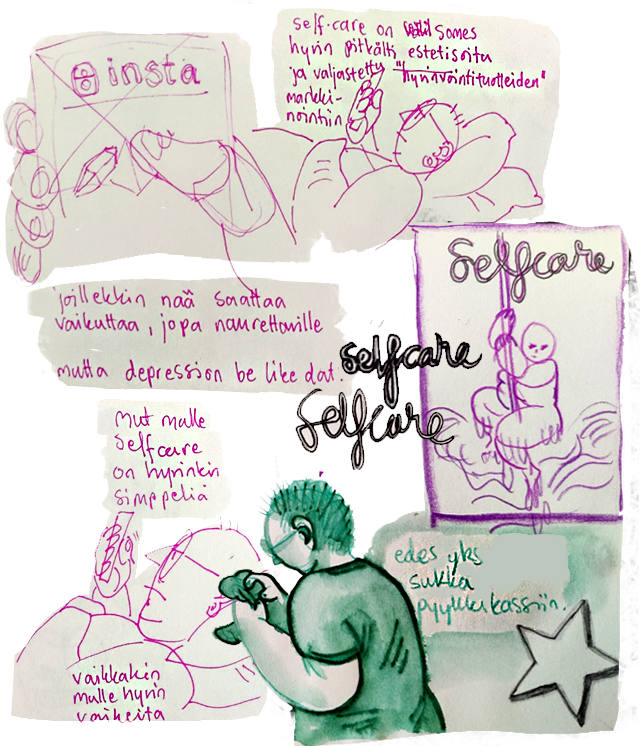 insta
self-care on somes
hyvin pitkälti estetisoitu
ja valjastettu "hyvinvointituotteiden"
markki-
nointiin
Selfcare
joillekkin nää saattaa
vaikuttaa, jopa naurettaville
mutta depression be like dat.
selfcare
Selfcare
Mut mulle
Selfcare
on hyvinkin
simppeliä
edes yks
sukka
pyykkikassiin.
vaikkakin
mulle hyvin
vaikeita